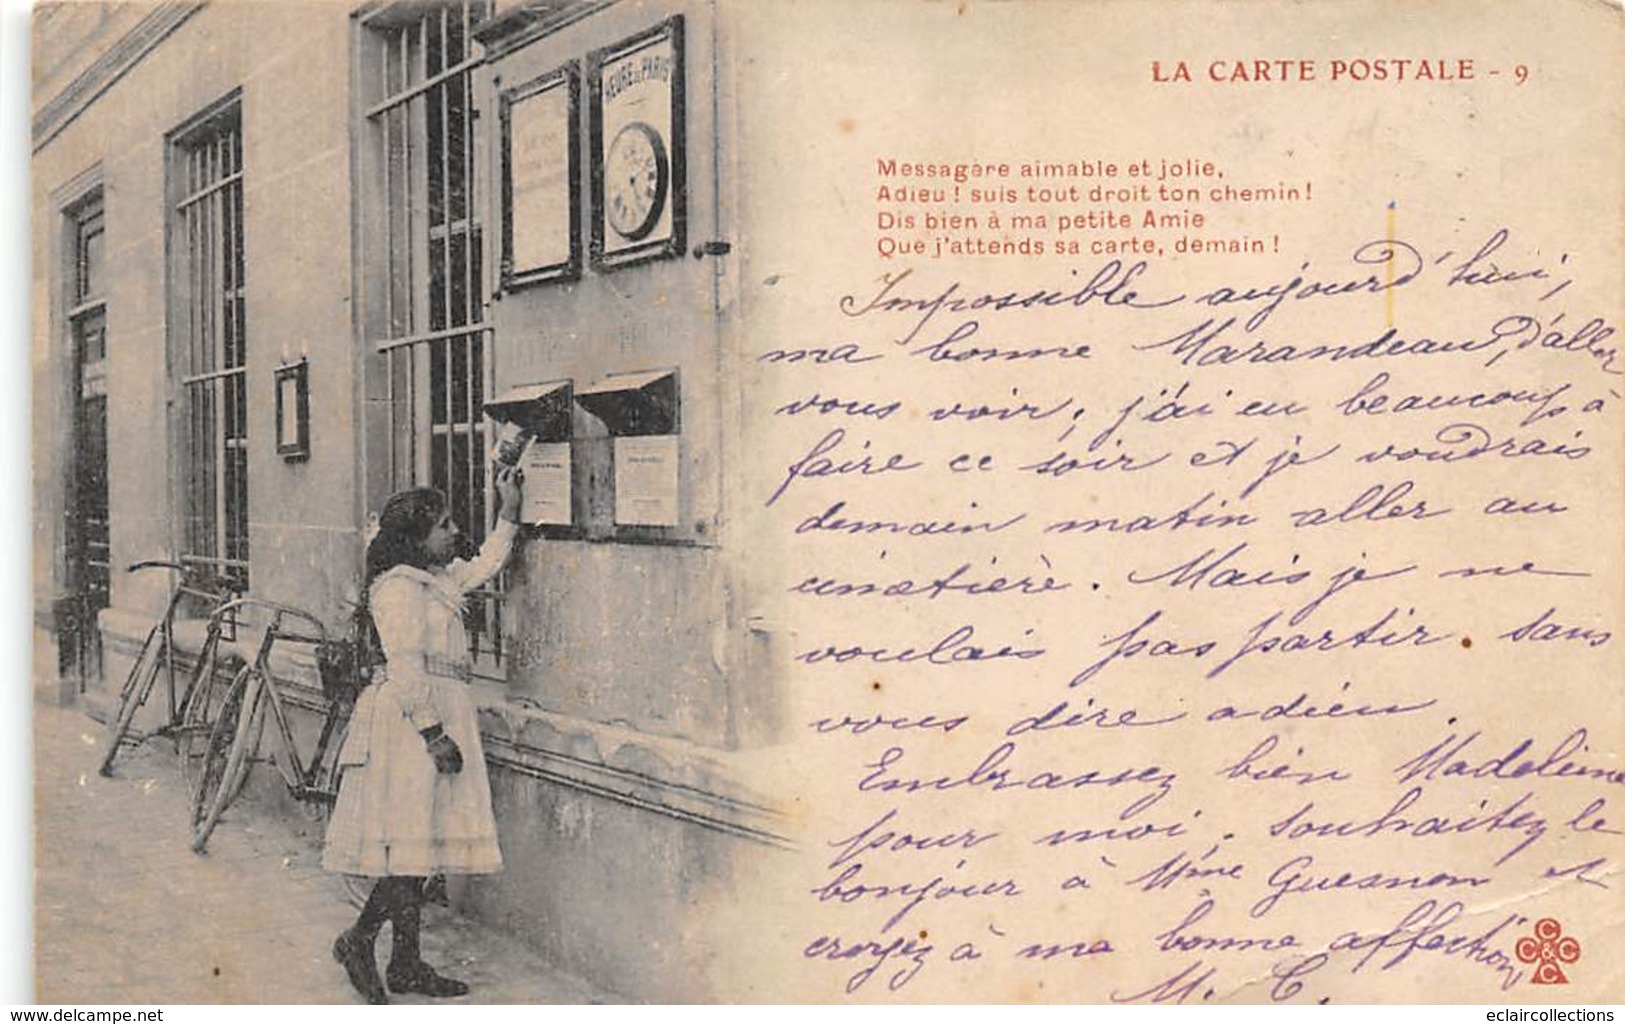 HEURE DE PARIS
LA CARTE POSTALE - 9
Messagère aimable et jolie,
Adieu ! suis tout droit ton chemin !
Dis bien à ma petite Amie
Que j'attends sa carte, demain !
Impossible aujourd'hui,
ma bonne Marandeau, d'aller
vous voir; j'ai eu beaucoup à
faire ce soir et je voudrais
demain matin aller au
cimetière. Mais je ne
voulais pas partir sans
vous dire adieu.
Embrassez bien Madeleine
pour moi, souhaitez le
bonjour à Mme Guesnon et
croyez à ma bonne affection
M. C.
C C & C C
www.delcampe.net
eclaircollections